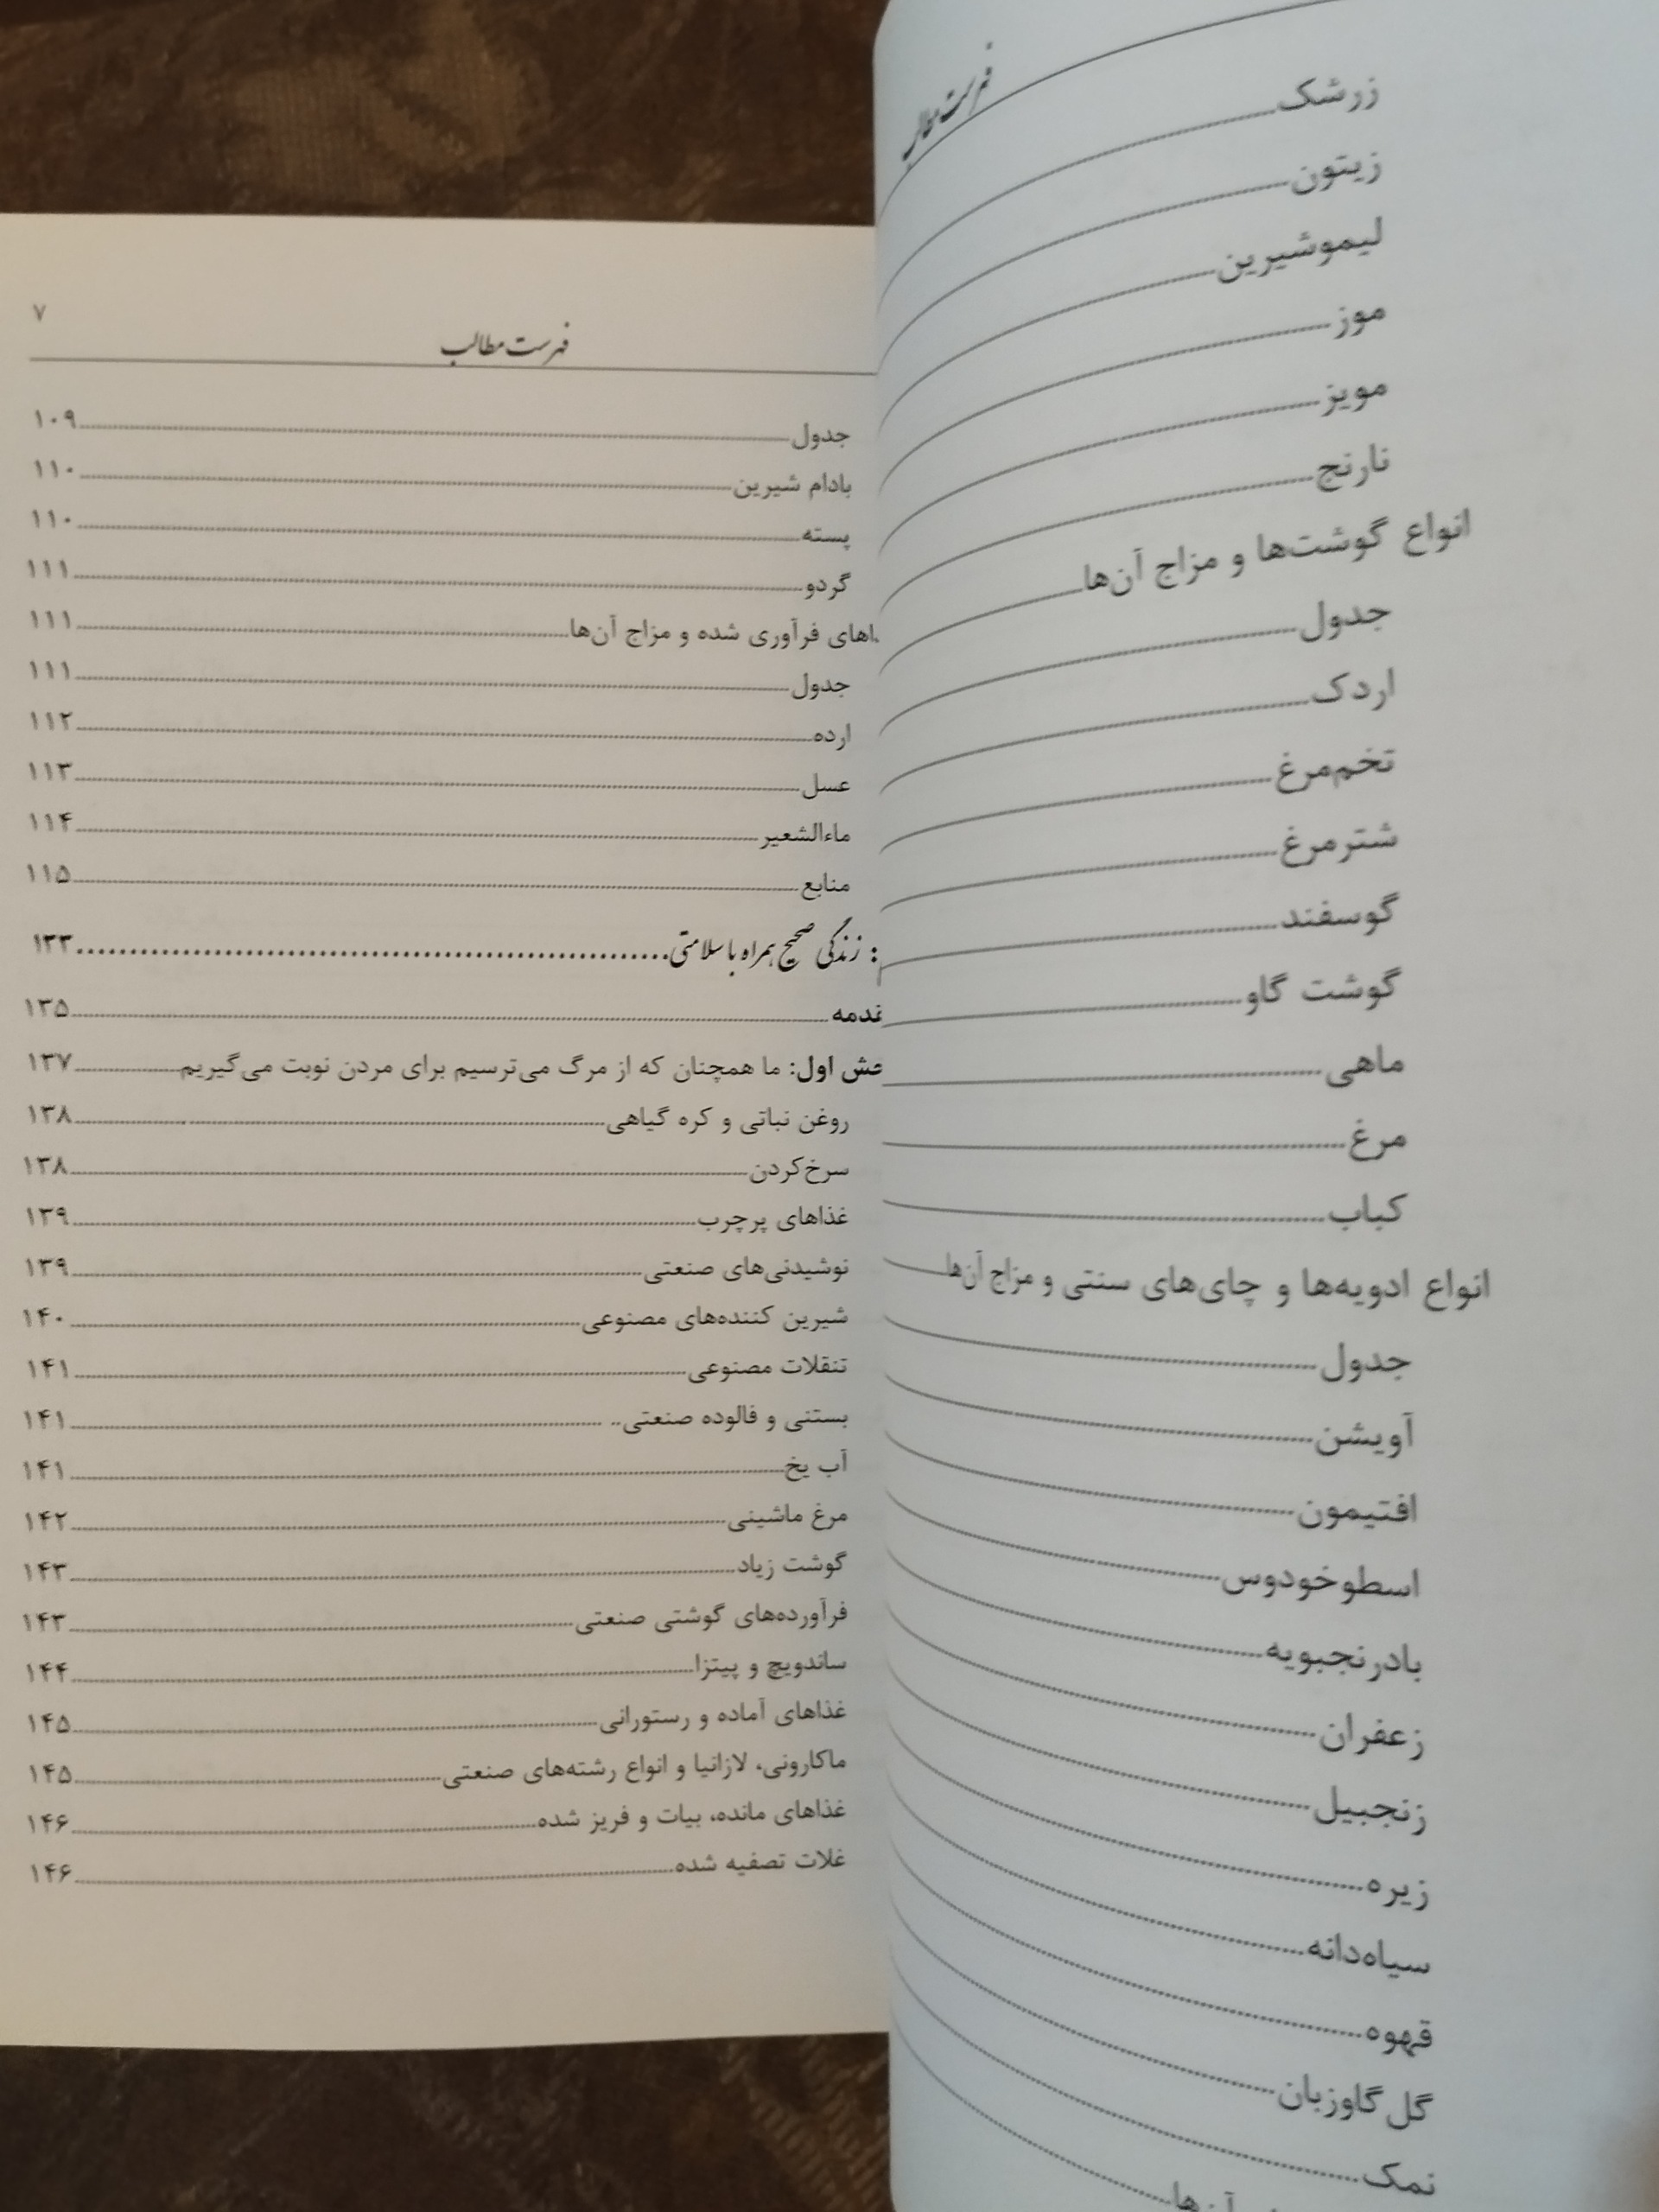 فهرست مطالب
زرشک
زیتون
لیموشیرین
موز
مویز
نارنج
انواع گوشت‌ها و مزاج آن‌ها
جدول
اردک
تخم‌مرغ
شترمرغ
گوسفند
گوشت گاو
ماهی
مرغ
کباب
انواع ادویه‌ها و چای‌های سنتی و مزاج آن‌ها
جدول
آویشن
افتیمون
اسطوخودوس
بادرنجبویه
زعفران
زنجبیل
زیره
سیاه‌دانه
قهوه
گل گاوزبان
نمک
آن‌ها
۷
فهرست مطالب
جدول ۱۰۹
بادام شیرین ۱۱۰
پسته ۱۱۰
گردو ۱۱۱
اهای فرآوری شده و مزاج آن‌ها ۱۱۱
جدول ۱۱۱
ارده ۱۱۲
عسل ۱۱۳
ماءالشعیر ۱۱۴
منابع ۱۱۵
: زندگی صحیح همراه با سلامتی ۱۳۳
دمه ۱۳۵
ش اول: ما همچنان که از مرگ می‌ترسیم برای مردن نوبت می‌گیریم ۱۳۷
روغن نباتی و کره گیاهی ۱۳۸
سرخ‌کردن ۱۳۸
غذاهای پرچرب ۱۳۹
نوشیدنی‌های صنعتی ۱۳۹
شیرین کننده‌های مصنوعی ۱۴۰
تنقلات مصنوعی ۱۴۱
بستنی و فالوده صنعتی ۱۴۱
آب یخ ۱۴۱
مرغ ماشینی ۱۴۲
گوشت زیاد ۱۴۳
فرآورده‌های گوشتی صنعتی ۱۴۳
ساندویچ و پیتزا ۱۴۴
غذاهای آماده و رستورانی ۱۴۵
ماکارونی، لازانیا و انواع رشته‌های صنعتی ۱۴۵
غذاهای مانده، بیات و فریز شده ۱۴۶
غلات تصفیه شده ۱۴۶